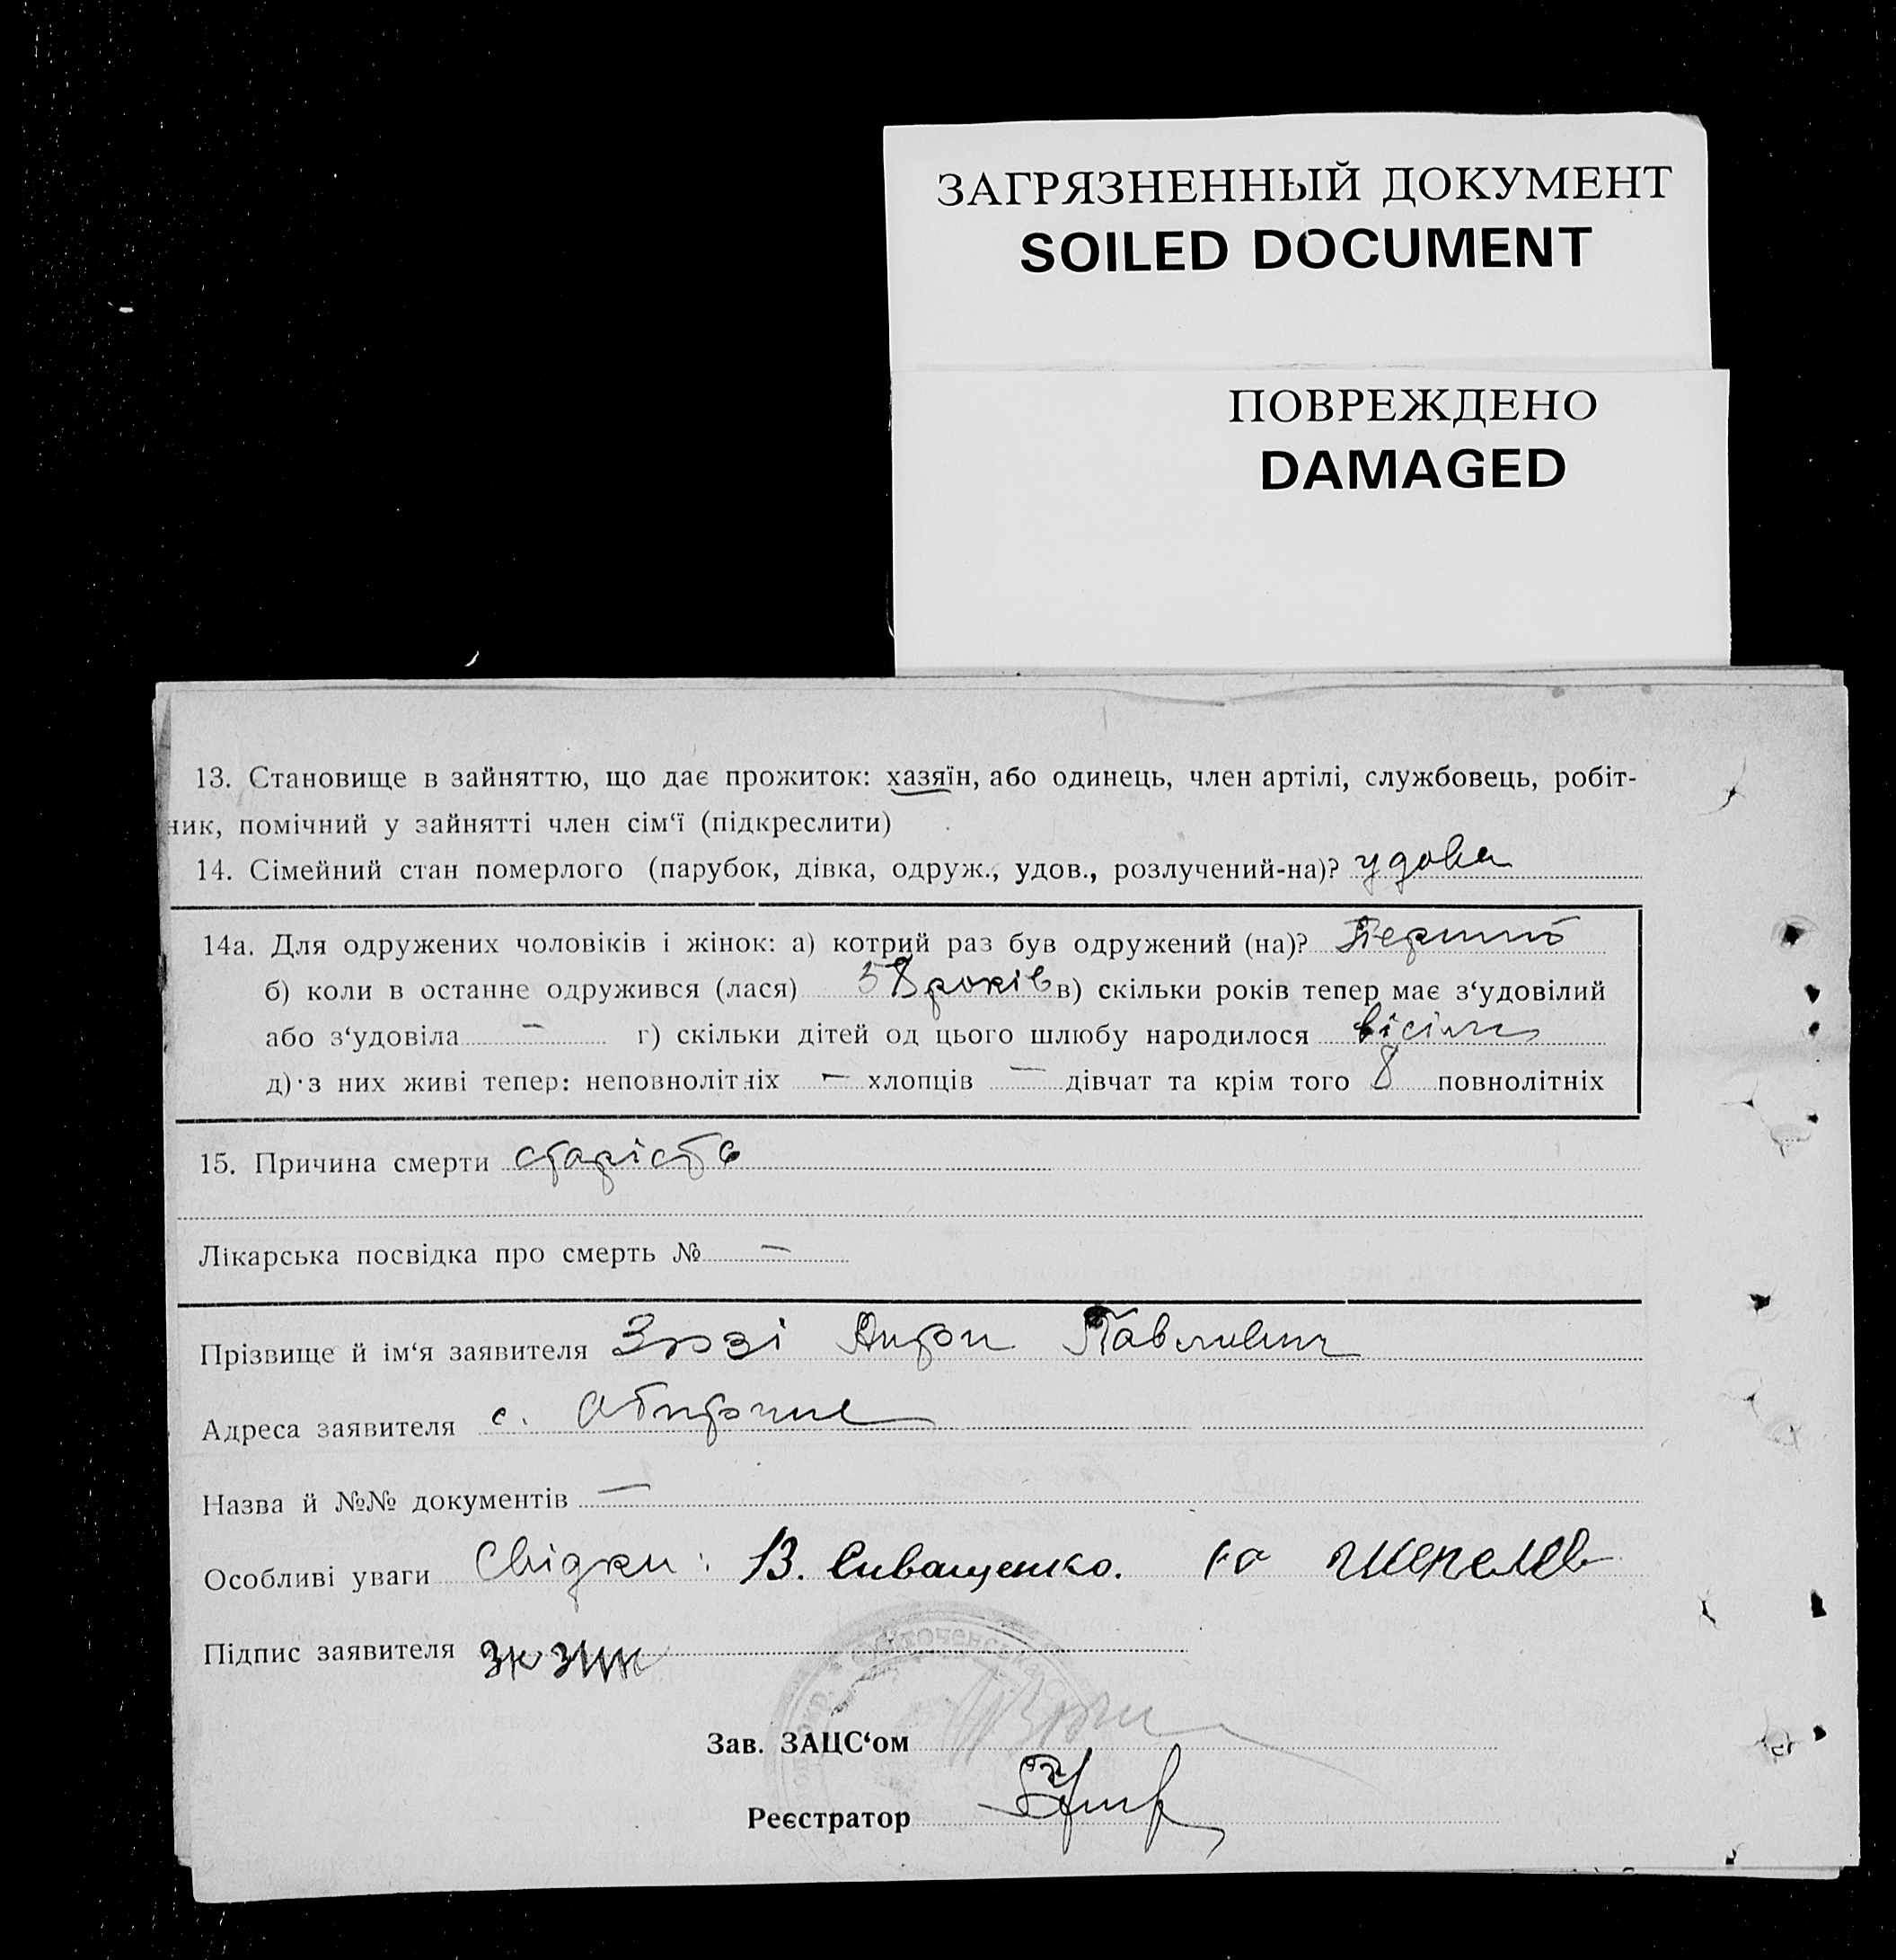 ЗАГРЯЗНЕННЫЙ ДОКУМЕНТ
SOILED DOCUMENT
ПОВРЕЖДЕНО
DAMAGED
13. Становище в зайняттю, що дає прожиток: хазяїн, або одинець, член артілі, службовець, робіт-
ник, помічний у зайнятті член сім‘ї (підкреслити)
14. Сімейний стан померлого (парубок, дівка, одруж., удов., розлучений-на)? удова
14а. Для одружених чоловіків і жінок: а) котрий раз був одружений (на)?
б) коли в останне одружився (лася) 58 років в) скільки років тепер має з‘удовілий
або з‘удовіла — г) скільки дітей од цього шлюбу народилося вісім
д) з них живі тепер: неповнолітніх — хлопців — дівчат та крім того 8 повнолітніх
15. Причина смерти старість
Лікарська посвідка про смерть № —
Прізвище й ім‘я заявителя Павлович
Адреса заявителя с.
Назва й №№ документів —
Особливі уваги Свідки: В. Сиващенко.
Підпис заявителя
Зав. ЗАЦС‘ом
Реєстратор